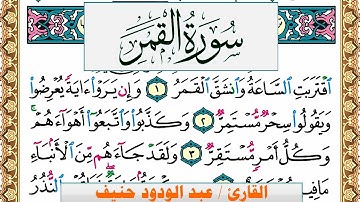 سورة القمر
ٱقۡتَرَبَتِ ٱلسَّاعَةُ وَٱنشَقَّ ٱلۡقَمَرُ ١ وَإِن يَرَوۡاْ ءَايَةٗ يُعۡرِضُواْ
وَيَقُولُواْ سِحۡرٞ مُّسۡتَمِرّٞ ٢ وَكَذَّبُواْ وَٱتَّبَعُوٓاْ أَهۡوَآءَهُمۡۚ
وَكُلُّ أَمۡرٖ مُّسۡتَقِرّٞ ٣ وَلَقَدۡ جَآءَهُم مِّنَ ٱلۡأَنۢبَآءِ
مَا فِيهِ ٱلنُّذُرُ
القارئ / عبد الودود حنيف